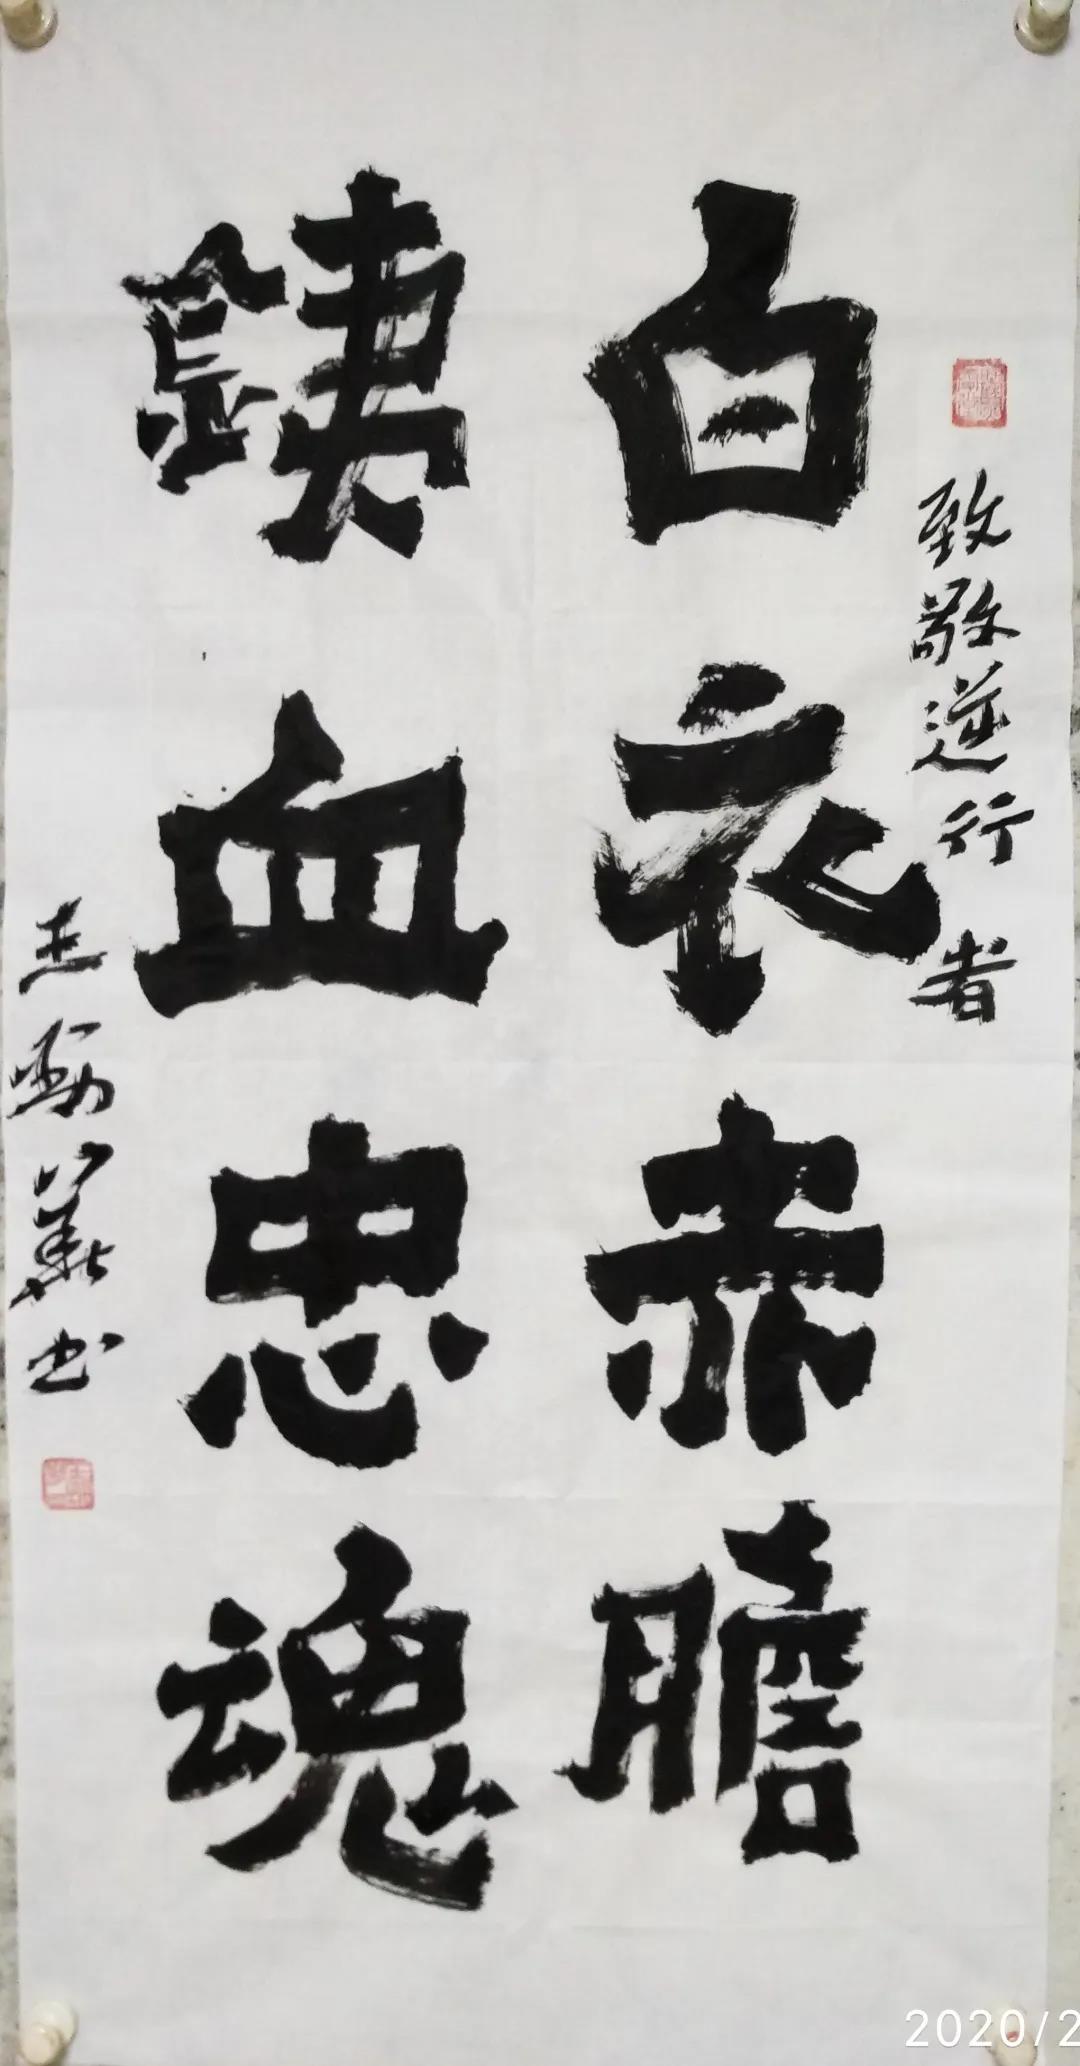 致敬逆行者
白衣赤膽
銕血忠魂
华书
2020/2